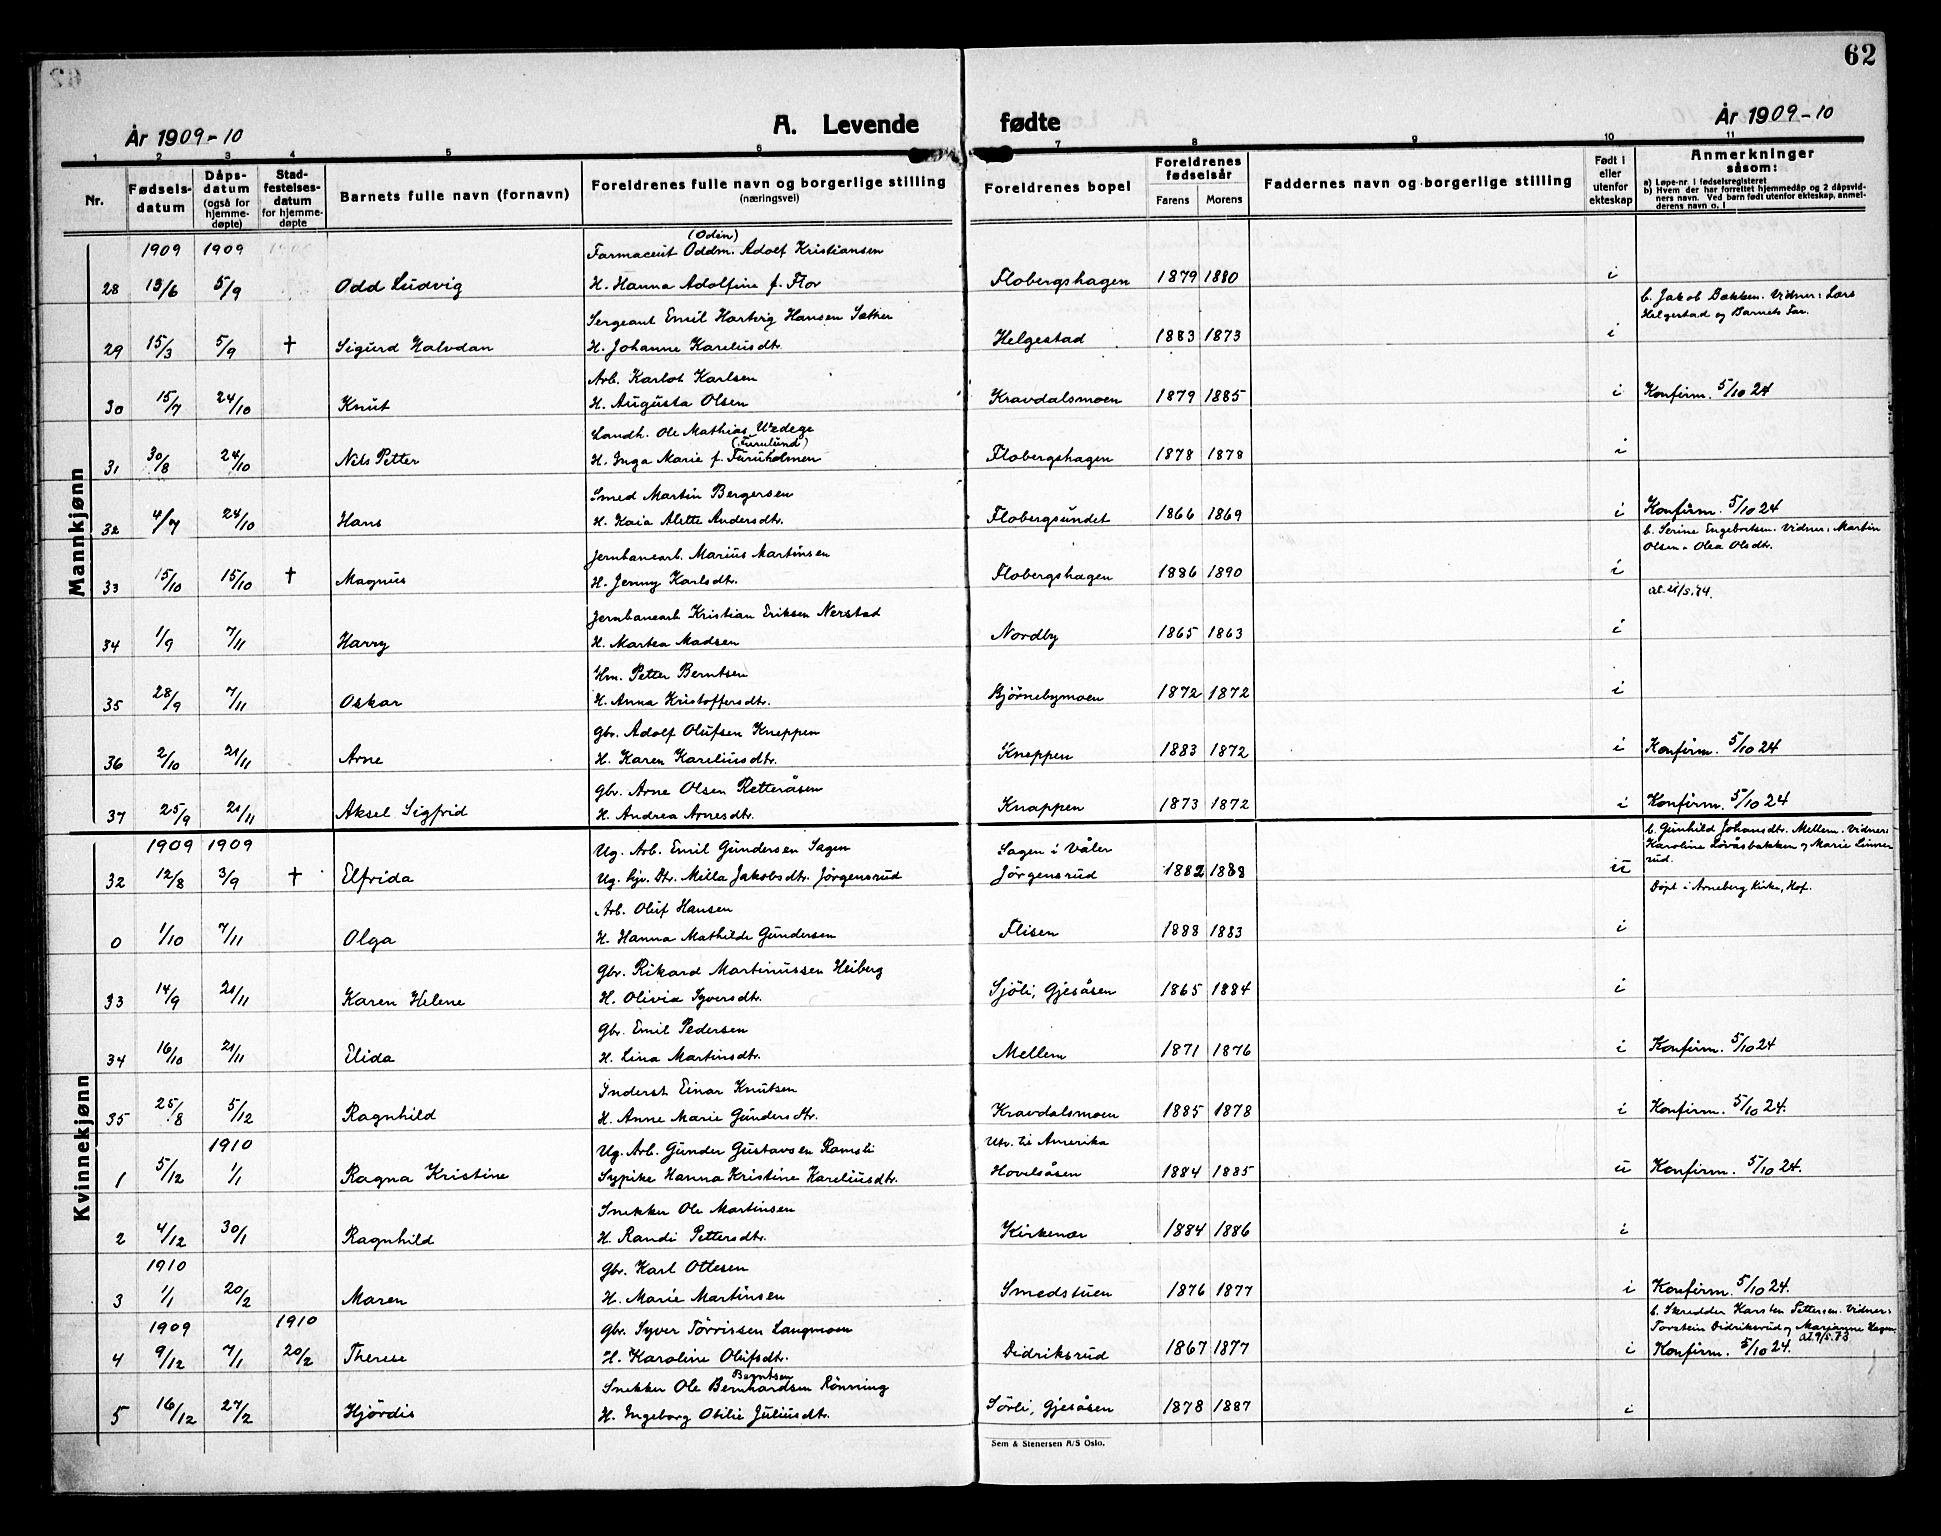 62
År 1909-10
A. Levende fødte
År 1909-10
1 2 3 4 5 6 7 8 9 10 11
Nr.
Fødsels-datum
Dåps-datum (også for hjemme-døpte)
Stad-festelses-datum for hjemme-døpte
Barnets fulle navn (fornavn)
Foreldrenes fulle navn og borgerlige stilling (næringsvei)
Foreldrenes bopel
Foreldrenes fødselsår
Farens Morens
Faddernes navn og borgerlige stilling
Født i eller utenfor ekteskap
Anmerkninger såsom:
a) Løpe-nr. i fødselsregisteret
b) Hvem der har forrettet hjemmedåp og 2 dåpsvid-
ners navn. Ved barn født utenfor ekteskap, anmel-
derens navn o. l
Mannkjønn
1909 1909
(Odin)
Farmaceut Oddm. Adolf Kristiansen
28 13/6 5/9 Odd Ludvig H. Hanna Adolfine f. Flor Flobergshagen 1879 1880 i
Sergeant Emil Hartvig Hansen Sæther
b. Jakob Bakken. Vidner: Lars
Helgestad og Barnets Far.
29 15/3 5/9 † Sigurd Halvdan H. Johanne Kareliusdtr. Helgestad 1883 1873 i
Arb. Karlot Karlsen
30 15/7 24/10 Knut H. Augusta Olsen Kravdalsmoen 1879 1885 i Konfirm. 5/10 24
Landh. Ole Mathias Uredege
(Furulund)
31 30/8 24/10 Nils Petter H. Inga Marie f. Furuholmen Flobergshagen 1878 1878 i
Smed Martin Bergersen
32 4/7 24/10 Hans H. Kaia Alette Andersdtr. Flobergsundet 1866 1869 i Konfirm. 5/10 24
Jernbanearb. Marius Martinsen
b. Serine Engebretsen. Vidner: Martin
Olsen - Olea Olsdtr.
33 15/10 15/10 † Magnus H. Jenny Karlsdtr. Flobergshagen 1886 1890 i
Jernbanearb Kristian Eriksen Nerstad
34 1/9 7/11 Harry H. Martea Madsen Nordby 1865 1863 i
Hm. Petter Berntsen
35 28/9 7/11 Oskar H. Anna Kristoffersdtr. Bjørnebymoen 1872 1872 i
Gbr. Adolf Olufsen Kneppen
36 2/10 21/11 Arne H. Karen Kareliusdtr. Kneppen 1883 1872 i Konfirm. 5/10 24
Gbr. Arne Olsen Retteråsen
37 25/9 21/11 Aksel Sigfrid H. Andrea Arnesdtr. Knappen 1873 1872 i Konfirm. 5/10 24
Kvinnekjønn
1909 1909 Ug. Arb. Emil Gundersen Sagen Sagen i Våler
b. Gunhild Johansdtr. Mellem. Vidner:
Karoline Løvåsbakken og Marie Linne-
rud.
32 12/8 3/9 † Elfrida Ug. hjv. Dtr. Milla Jakobsdtr. Jørgensrud Jørgensrud 1882 1888 u
Arb. Oluf Hansen
Døpt i Arneberg Kirke, Hof.
0 1/10 7/11 Olga H. Hanna Mathilde Gundersen Flisen 1888 1883 i
Gbr. Rikard Martinussen Heiberg
33 14/9 21/11 Karen Helene H. Olivia Syversdtr. Sjöli, Gjesåsen 1865 1884 i
Gbr. Emil Pedersen
34 16/10 21/11 Elida H. Lina Martinsdtr. Mellem 1871 1876 i Konfirm. 5/10 24
Inderst Einar Knutsen
35 25/8 5/12 Ragnhild H. Anne Marie Gundersdtr. Kravdalsmoen 1885 1878 i Konfirm. 5/10 24.
1910 Ug. Arb. Gunder Gustavsen Ramsli Utv. til Amerika
1 5/12 1/1 Ragna Kristine Sypike Hanna Kristine Kareliusdtr. Hovelsåsen 1884 1885 u Konfirm. 5/10 24.
Snekker Ole Martinsen
2 4/12 30/1 Ragnhild H. Randi Pettersdtr. Kirkenær 1884 1886 i
1910 Gbr. Karl Ottesen
3 1/1 20/2 Maren H. Marie Martinsen Smedstuen 1876 1877 i Konfirm. 5/10 24.
1909 1910 Gbr. Syver Törrissen Langmoen
b. Skredder Karsten Pettersen. Vidner:
Torstein Didriksrud og Marianne Hagen.
at. 9/5.73
4 9/12 7/1 20/2 Therese H. Karoline Olufsdtr. Didriksrud 1867 1877 i Konfirm. 5/10 24.
Berntsen
Snekker Ole Bernhardsen Rönning
5 16/12 27/2 Hjördis H. Ingeborg Otilie Juliusdtr. Sörli, Gjesåsen 1878 1887 i
Sem & Stenersen A/S Oslo.